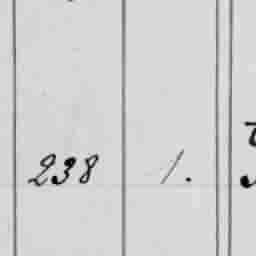 238 1.